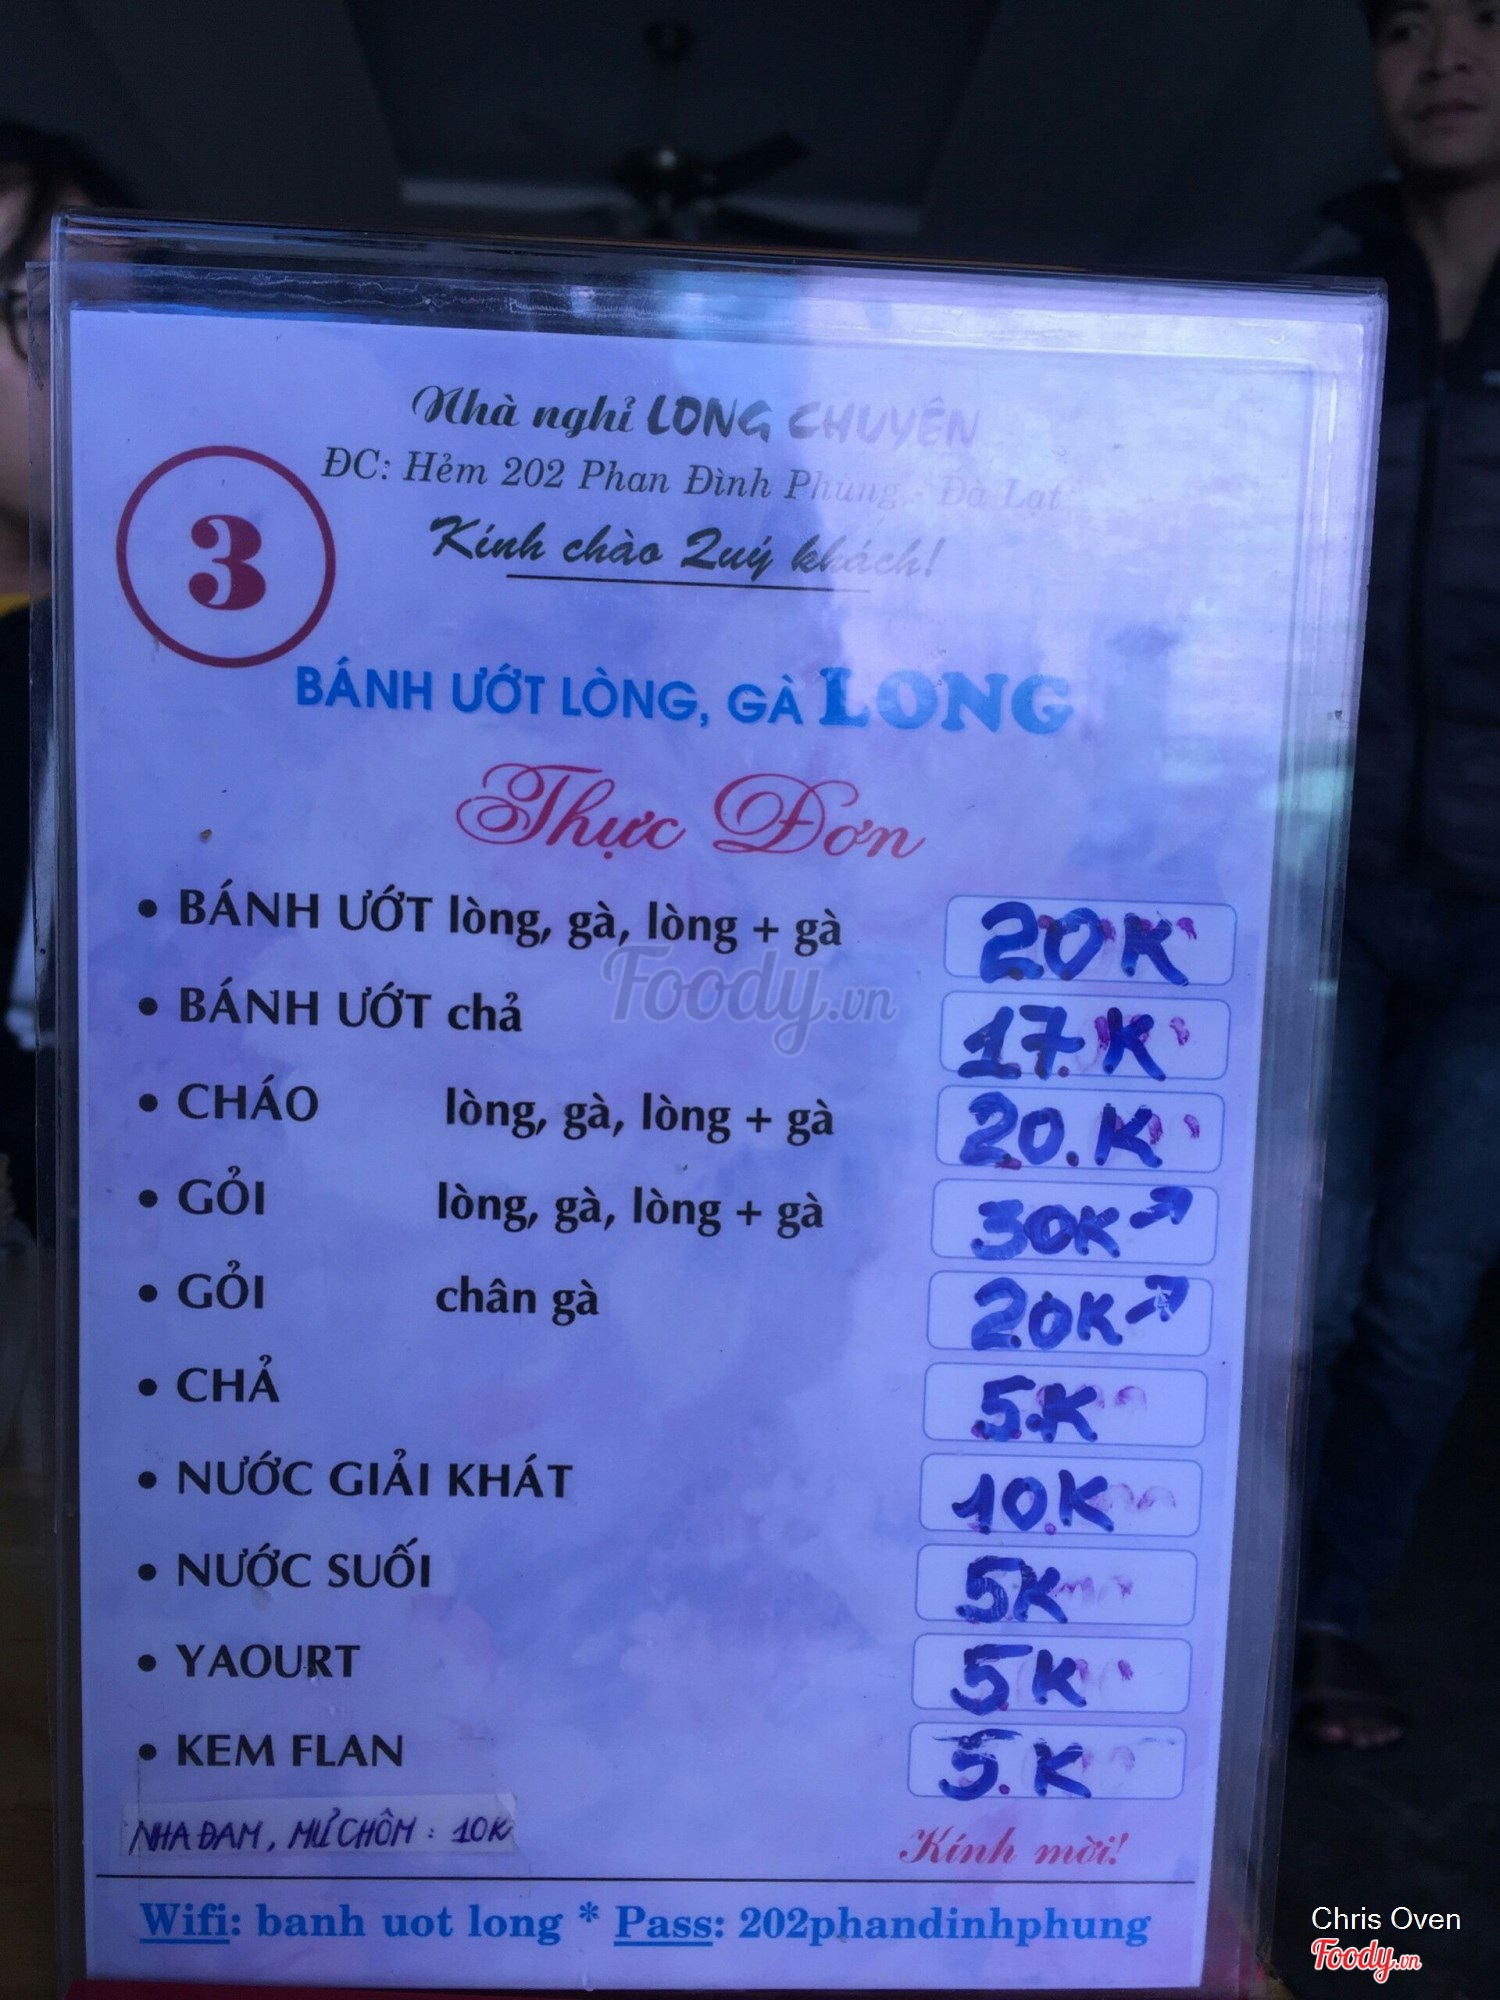 Nhà nghỉ LONG CHUYÊN
ĐC: Hẻm 202 Phan Đình Phùng - Đà Lạt
3
Kính chào Quý khách!
BÁNH ƯỚT LÒNG, GÀ LONG
Thực Đơn
• BÁNH ƯỚT lòng, gà, lòng + gà 20K
• BÁNH ƯỚT chả 17.K
• CHÁO lòng, gà, lòng + gà 20.K
• GỎI lòng, gà, lòng + gà 30K↗
• GỎI chân gà 20K↗
• CHẢ 5.K
• NƯỚC GIẢI KHÁT 10.K
• NƯỚC SUỐI 5K
• YAOURT 5.K
• KEM FLAN 5.K
NHA ĐAM, MỦ CHÔM : 10K
Kính mời!
Wifi: banh uot long * Pass: 202phandinhphung
Foody.vn
Chris Oven
Foody.vn